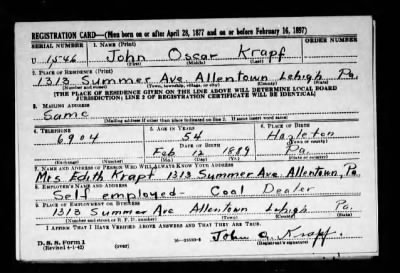 REGISTRATION CARD—(Men born on or after April 28, 1877 and on or before February 16, 1897)
SERIAL NUMBER 1. NAME (Print) ORDER NUMBER
U 1546 John Oscar Krapf
(First) (Middle) (Last)
2. PLACE OF RESIDENCE (Print)
1313 Summer Ave. Allentown Lehigh Pa.
(Number and street) (Town, township, village, or city) (County) (State)
[THE PLACE OF RESIDENCE GIVEN ON THE LINE ABOVE WILL DETERMINE LOCAL BOARD
JURISDICTION; LINE 2 OF REGISTRATION CERTIFICATE WILL BE IDENTICAL]
3. MAILING ADDRESS
Same
[Mailing address if other than place indicated on line 2. If same insert word same]
4. TELEPHONE 5. AGE IN YEARS 6. PLACE OF BIRTH
6904 54 Hazleton
DATE OF BIRTH (Town or county)
Feb 12 1889 Pa.
(Exchange) (Number) (Mo.) (Day) (Yr.) (State or country)
7. NAME AND ADDRESS OF PERSON WHO WILL ALWAYS KNOW YOUR ADDRESS
Mrs Edith Krapf 1313 Summer Ave. Allentown, Pa
8. EMPLOYER'S NAME AND ADDRESS
Self employed - Coal Dealer
9. PLACE OF EMPLOYMENT OR BUSINESS
1313 Summer Ave Allentown Lehigh Pa.
(Number and street or R. F. D. number) (Town) (County) (State)
I AFFIRM THAT I HAVE VERIFIED ABOVE ANSWERS AND THAT THEY ARE TRUE.
D. S. S. Form 1
(Revised 4-1-42) (over) John O. Krapf.
(Registrant's signature)